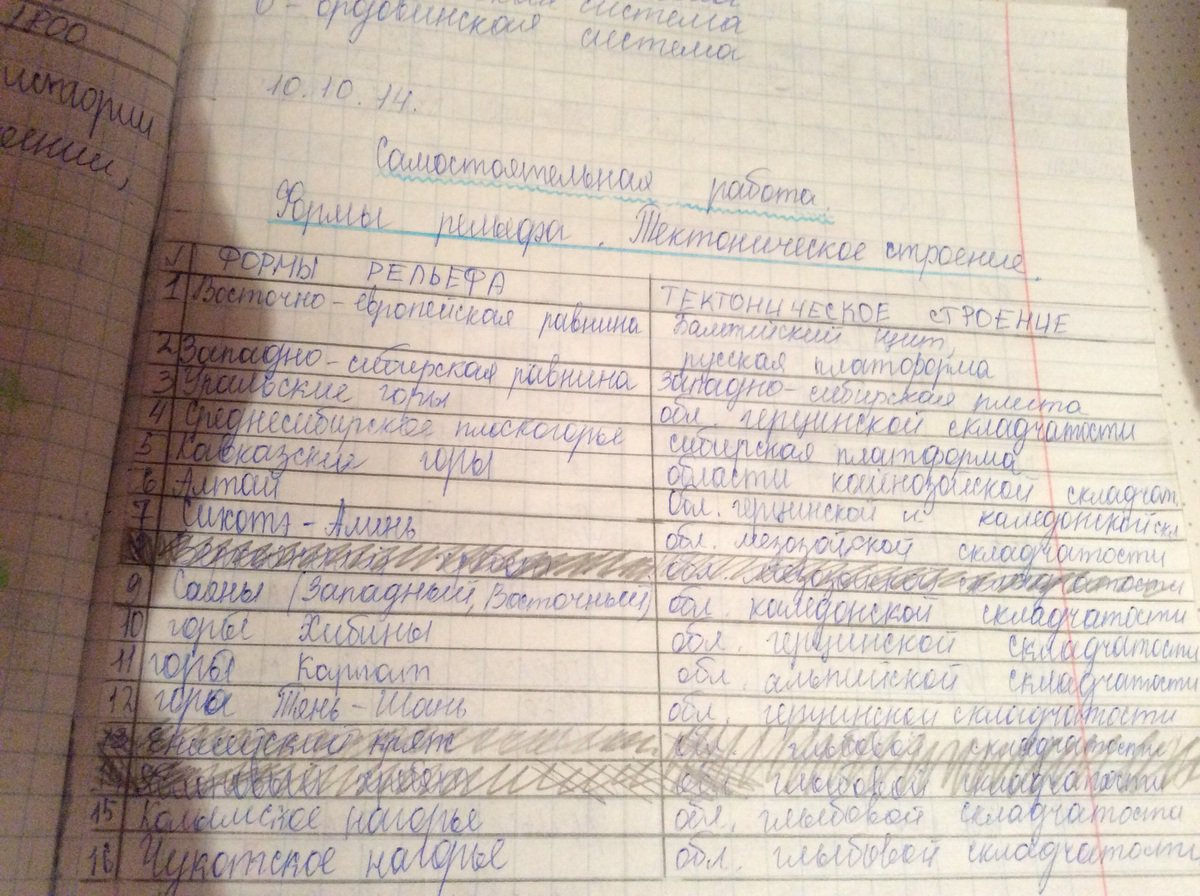 1200
система
О - ордовинская система
10.10.14.
Самостоятельная работа.
Формы рельефа. Тектоническое строение.
№ ФОРМЫ РЕЛЬЕФА ТЕКТОНИЧЕСКОЕ СТРОЕНИЕ
1 Восточно-европейская равнина Балтийский щит,
русская платформа
2 Западно-сибирская равнина западно-сибирская плита
3 Уральские горы обл. герцинской складчатости
4 Среднесибирское плоскогорье сибирская платформа
5 Кавказские горы области кайнозойской складчат.
6 Алтай обл. герцинской и каледонской скл.
7 Сихотэ-Алинь обл. мезозойской складчатости
обл. складчатости
9 Саяны (Западный, Восточный) обл. каледонской складчатости
10 горы Хибины обл. герцинской складчатости
11 горы Карпат обл. альпийской складчатости
12 горы Тянь-Шань обл. герцинской складчатости
13 Енисейский кряж обл. глыбовой складчатости
хребет обл. глыбовой складчатости
15 Колымское нагорье обл. глыбовой складчатости
16 Чукотское нагорье обл. глыбовой складчатости